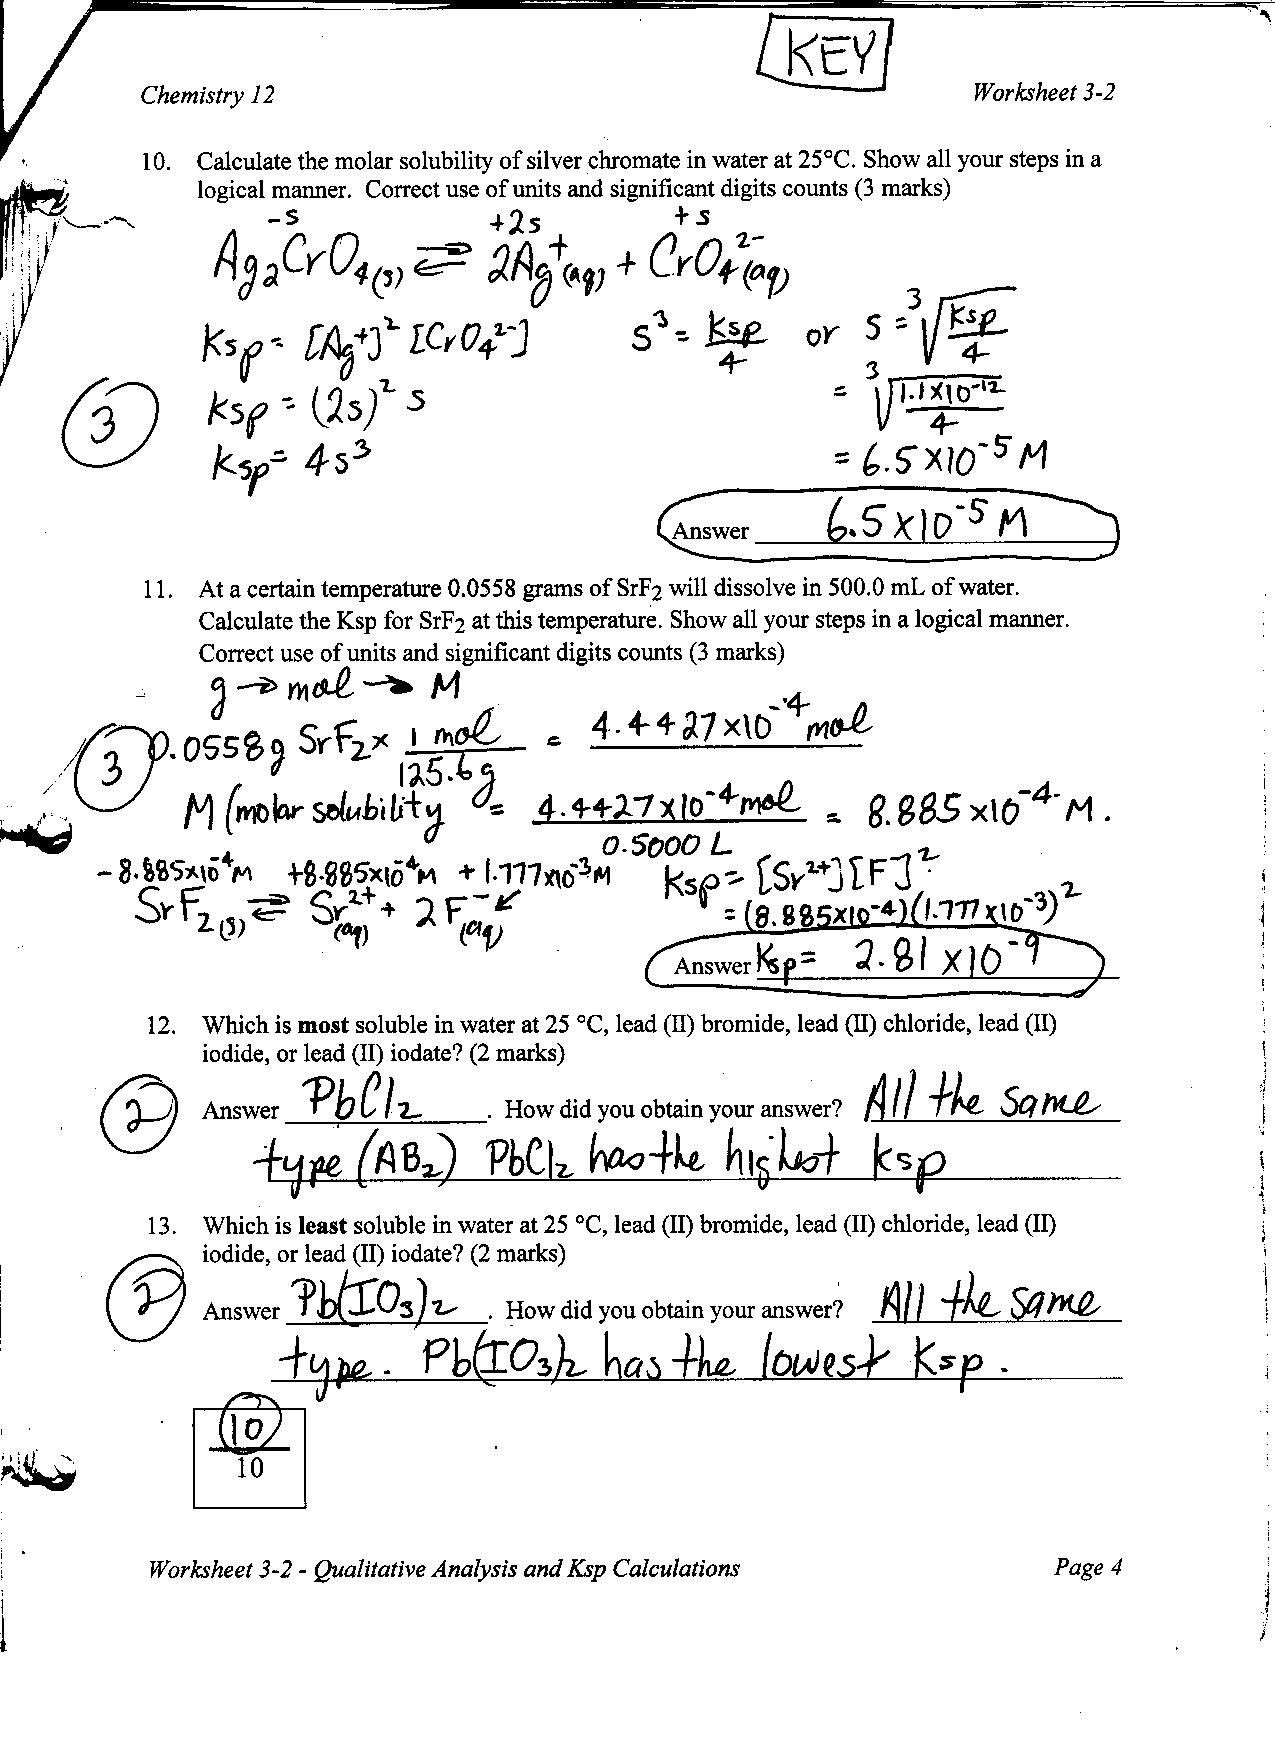 KEY
Chemistry 12
Worksheet 3-2
10. Calculate the molar solubility of silver chromate in water at 25°C. Show all your steps in a
logical manner. Correct use of units and significant digits counts (3 marks)
-s +2s +s
Ag₂CrO₄(s) ⇌ 2Ag⁺(aq) + CrO₄²⁻(aq)
Ksp = [Ag⁺]² [CrO₄²⁻] S³ = Ksp/4 or S = ³√(Ksp/4)
Ksp = (2s)² s = ³√(1.1x10⁻¹²/4)
3
Ksp = 4s³ = 6.5x10⁻⁵ M
Answer 6.5x10⁻⁵ M
11. At a certain temperature 0.0558 grams of SrF₂ will dissolve in 500.0 mL of water.
Calculate the Ksp for SrF₂ at this temperature. Show all your steps in a logical manner.
Correct use of units and significant digits counts (3 marks)
g → mol → M
3
0.0558g SrF₂ x 1 mol/125.6g = 4.4427x10⁻⁴ mol
M (molar solubility = 4.4427x10⁻⁴ mol/0.5000 L = 8.885x10⁻⁴ M.
-8.885x10⁻⁴M +8.885x10⁻⁴M +1.777x10⁻³M Ksp = [Sr²⁺][F⁻]²
SrF₂(s) ⇌ Sr²⁺(aq) + 2F⁻(aq) = (8.885x10⁻⁴)(1.777x10⁻³)²
Answer Ksp = 2.81x10⁻⁹
12. Which is most soluble in water at 25 °C, lead (II) bromide, lead (II) chloride, lead (II)
iodide, or lead (II) iodate? (2 marks)
2
Answer PbCl₂. How did you obtain your answer? All the same
type (AB₂) PbCl₂ has the highest Ksp
13. Which is least soluble in water at 25 °C, lead (II) bromide, lead (II) chloride, lead (II)
iodide, or lead (II) iodate? (2 marks)
2
Answer Pb(IO₃)₂. How did you obtain your answer? All the same
type. Pb(IO₃)₂ has the lowest Ksp.
10
10
Worksheet 3-2 - Qualitative Analysis and Ksp Calculations
Page 4